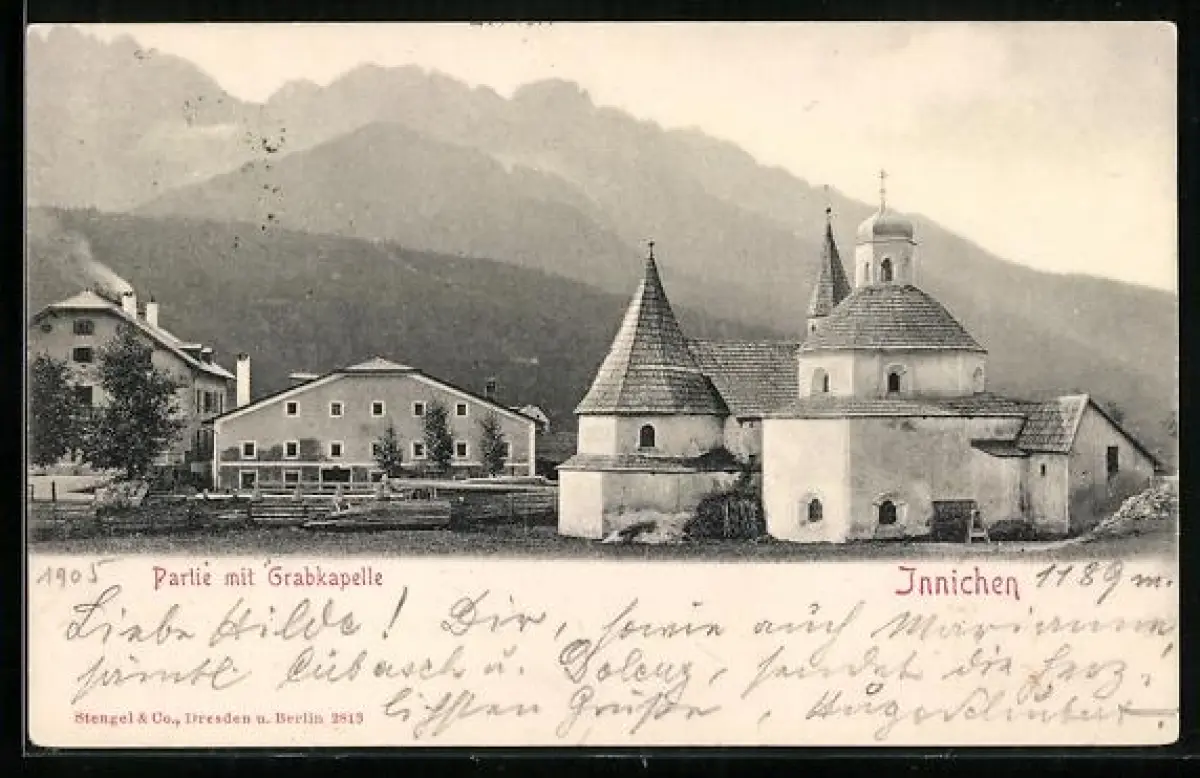 1905 Partie mit Grabkapelle Innichen 1189 m.
Liebe Hilde! Dir, sowie auch Marianne
sämtl. Cubasch u. Dolenz, sendet die herz-
Stengel & Co., Dresden u. Berlin 2813 lichsten Grüße,